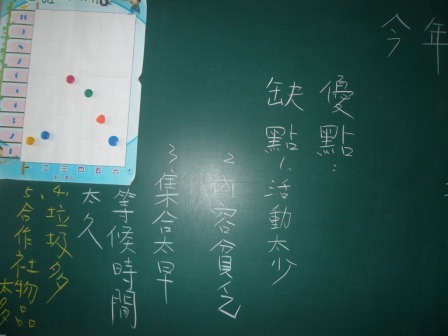 今年
優點：
缺點1、活動太少
2.內容貧乏
3.集合太早
等候時間
太久
4.垃圾多
5.合作社物品太多
三 四 五 六 七